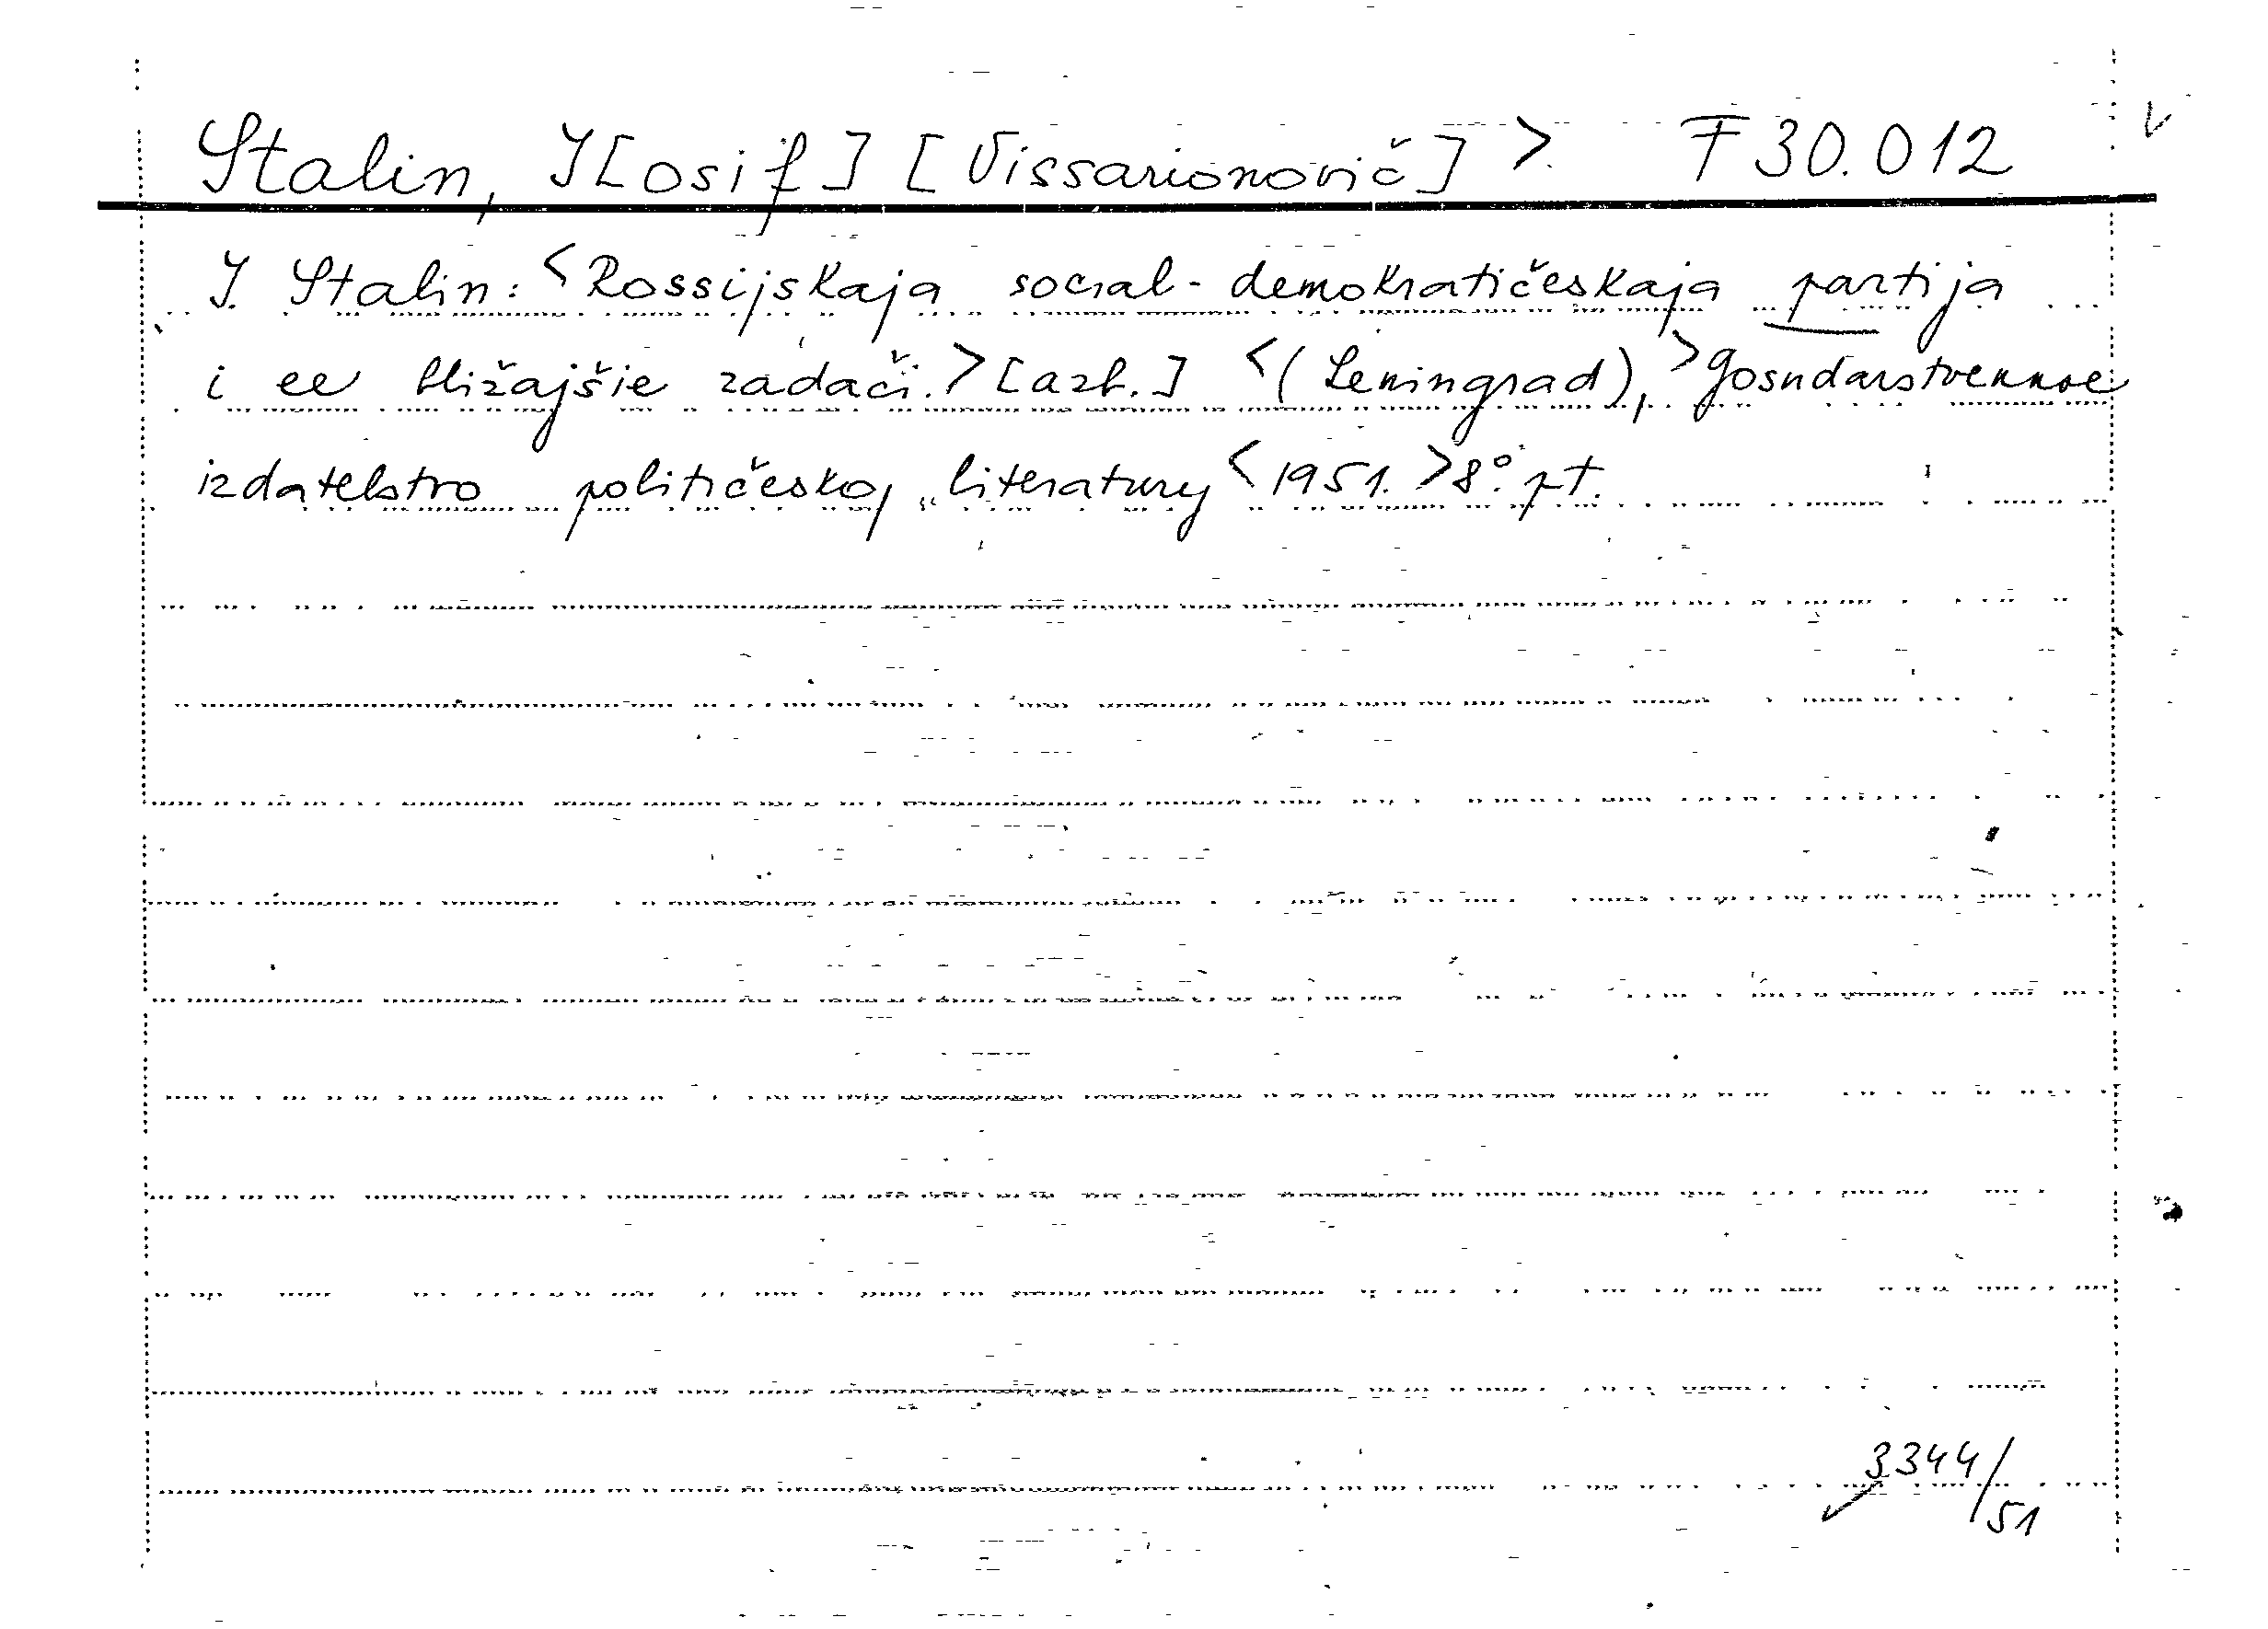 Stalin, J[osif] [Vissarionovič] > F 30.012
J. Stalin: <Rossijskaja social-demokratičeskaja partija
i ee bližajšie zadači.> [azb.] <(Leningrad),> Gosudarstvennoe
izdatelstvo političeskoj literatury <1951.> 8° pt.
3344/51